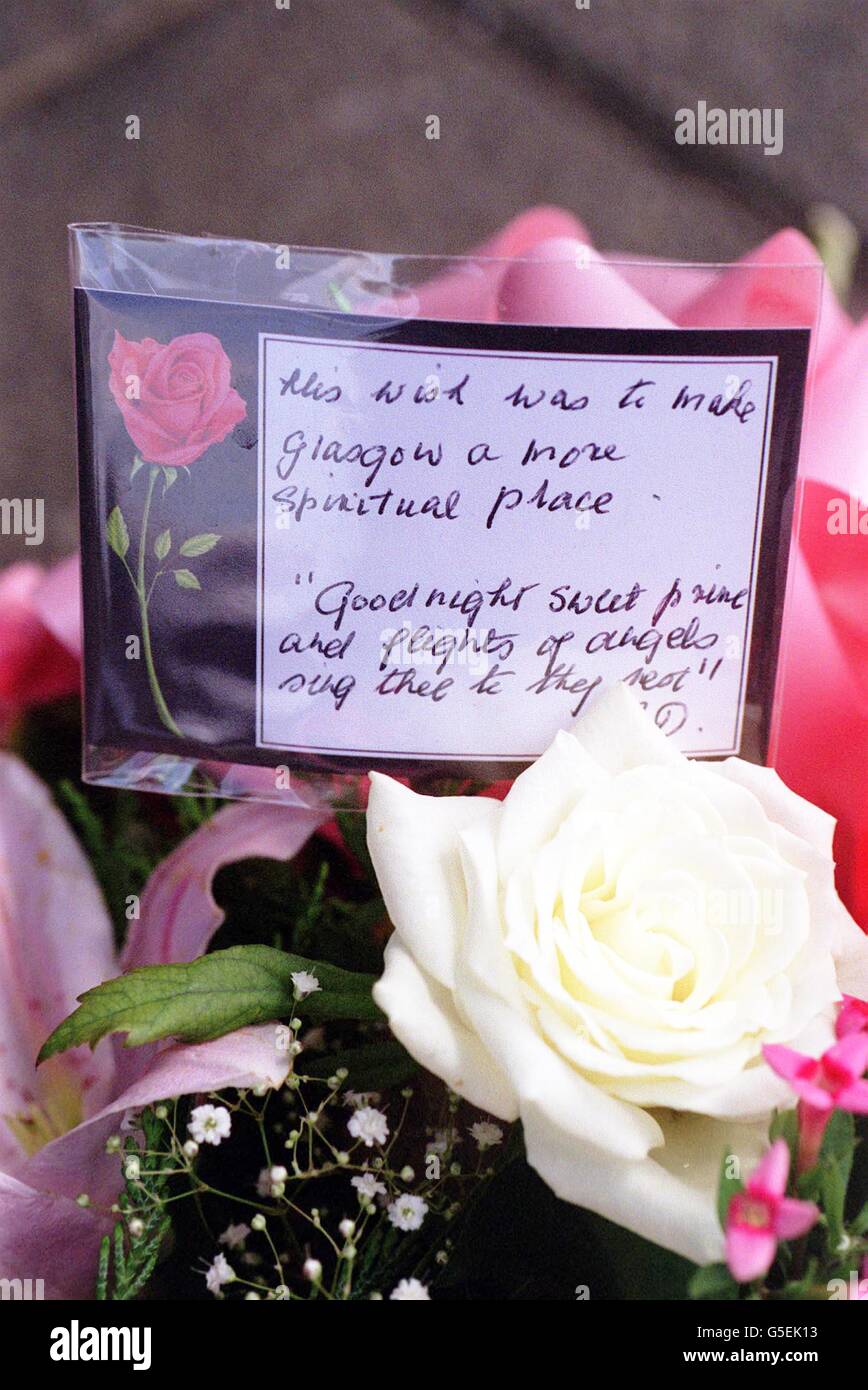 His wish was to make
Glasgow a more
Spiritual place.
"Goodnight sweet prince
and flights of angels
sing thee to thy rest"
a
alamy
a
a
alamy
a
a
alamy
alamy
Image ID: G5EK13
www.alamy.com